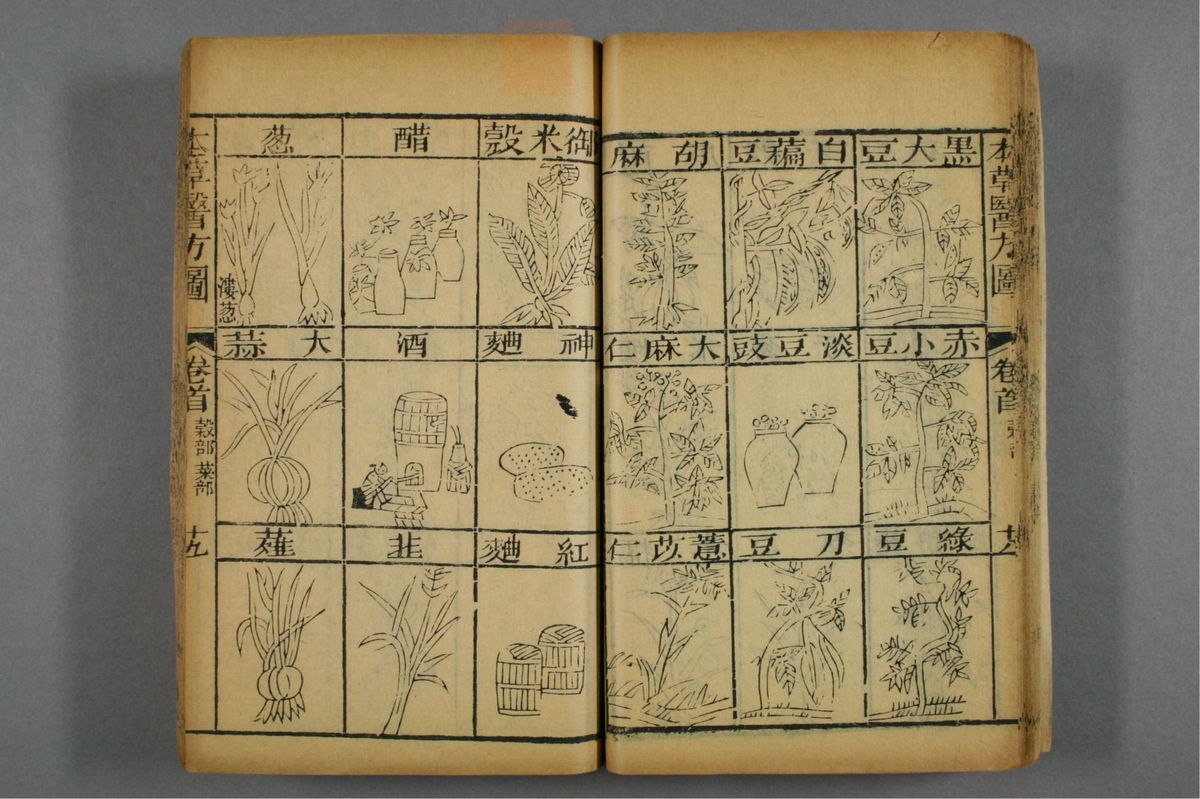 本草醫方圖
卷首
黑大豆
白藊豆
胡麻
赤小豆
淡豆豉
大麻仁
綠豆
刀豆
薏苡仁
御米殼
醋
葱
漊葱
神麯
酒
大蒜
紅麯
韭
薤
本草醫方圖
卷首
穀部 菜部
十九